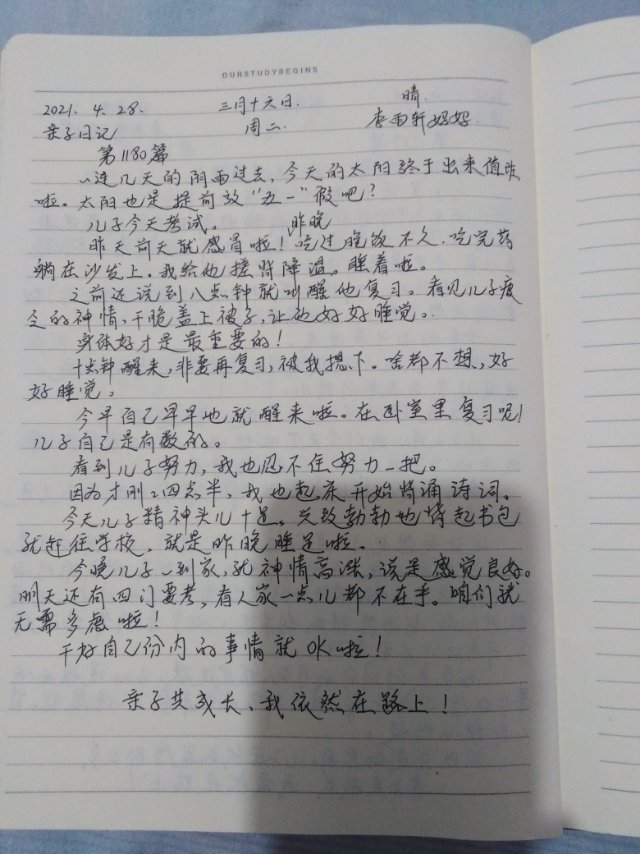 OURSTUDYBEGINS
2021. 4. 28. 三月十六日. 晴.
亲子日记 周二. 李雨轩妈妈.
第1180篇
一连几天的阴雨过去,今天的太阳终于出来值班
啦。太阳也是提前放“五一”假吧?
儿子今天考试。 昨晚
昨天前天就感冒啦!吃过晚饭不久.吃完药
躺在沙发上。我给他搓背降温。睡着啦。
之前还说到八点钟就叫醒他复习。看见儿子疲
乏的神情,干脆盖上被子,让他好好睡觉。
身体好才是最重要的!
十点钟醒来,非要再复习,被我摁下。啥都不想,好
好睡觉。
今早自己早早地就醒来啦。在卧室里复习呢!
儿子自己是有数的。
看到儿子努力,我也忍不住努力一把。
因为才刚刚四点半,我也起床开始背诵诗词。
今天儿子精神头儿十足。兴致勃勃地背起书包
就赶往学校,就是昨晚睡足啦。
今晚儿子一到家,就神情高涨,说是感觉良好。
明天还有四门要考,看人家一点儿都不在乎。咱们就
无需多虑啦!
干好自己份内的事情就OK啦!
亲子共成长,我依然在路上!